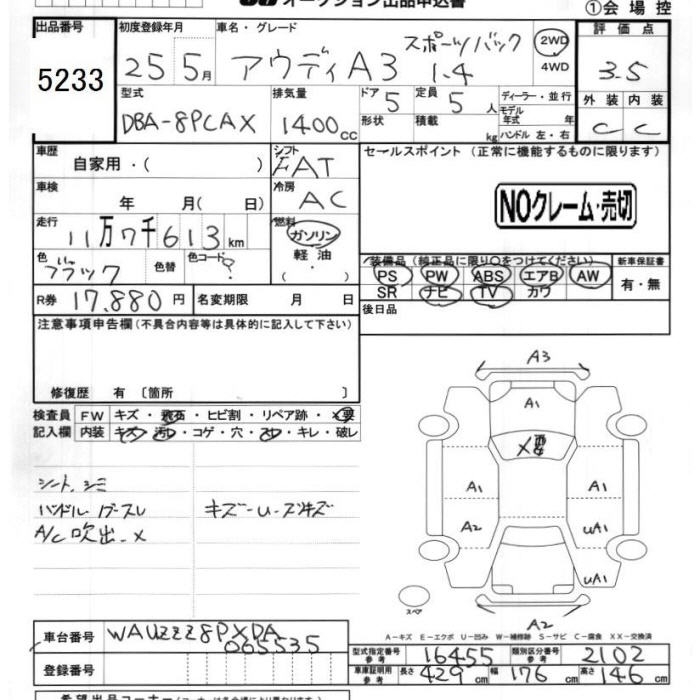 オークション出品申込書
①会場控
出品番号
5233
初度登録年月
25 5月
車名・グレード
アウディA3 スポーツバック 1.4
2WD
4WD
評価点
3.5
外装 内装
C C
型式
DBA-8PCAX
排気量
1400cc
ドア 5
形状
定員 5人
積載 kg
ディーラー・並行
モデル年式 年
ハンドル 左・右
車歴
自家用・( )
シフト
FAT
車検
年 月( 日)
冷房
AC
走行
11万7千613km
燃料
ガソリン
軽油
色
ブラック
色替
色コード ?
R券 17,880円
名変期限 月 日
セールスポイント(正常に機能するものに限ります)
NOクレーム・売切
装備品(純正品に限り○をつけてください)
PS PW ABS エアB AW
SR ナビ TV カワ
新車保証書
有・無
後日品
注意事項申告欄(不具合内容等は具体的に記入して下さい)
修復歴 有〔箇所 〕
検査員記入欄
FW キズ・飛石・ヒビ割・リペア跡・×要
内装 キズ・汚れ・コゲ・穴・スレ・キレ・破レ
シート、シミ
A/C吹出-×
A3
A1
×要
A1 A1
A2 UA1
UA1
スペア
A2
A-キズ E-エクボ U-凹み W-補修跡 S-サビ C-腐食 XX-交換済
車台番号 WAUZZZ8PXDA065535
登録番号
型式指定番号参考 16455
類別区分番号参考 2102
車庫証明用参考 長さ 429cm 幅 176cm 高さ 146cm
希望出品コーナー